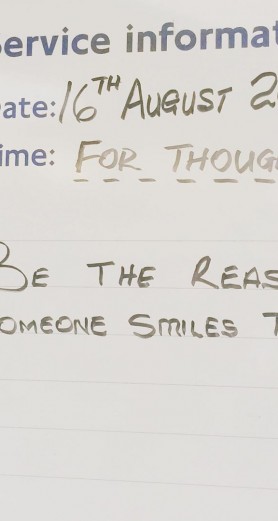 ervice informat
ate: 16TH AUGUST 2
ime: FOR THOUG
BE THE REAS
OMEONE SMILES T